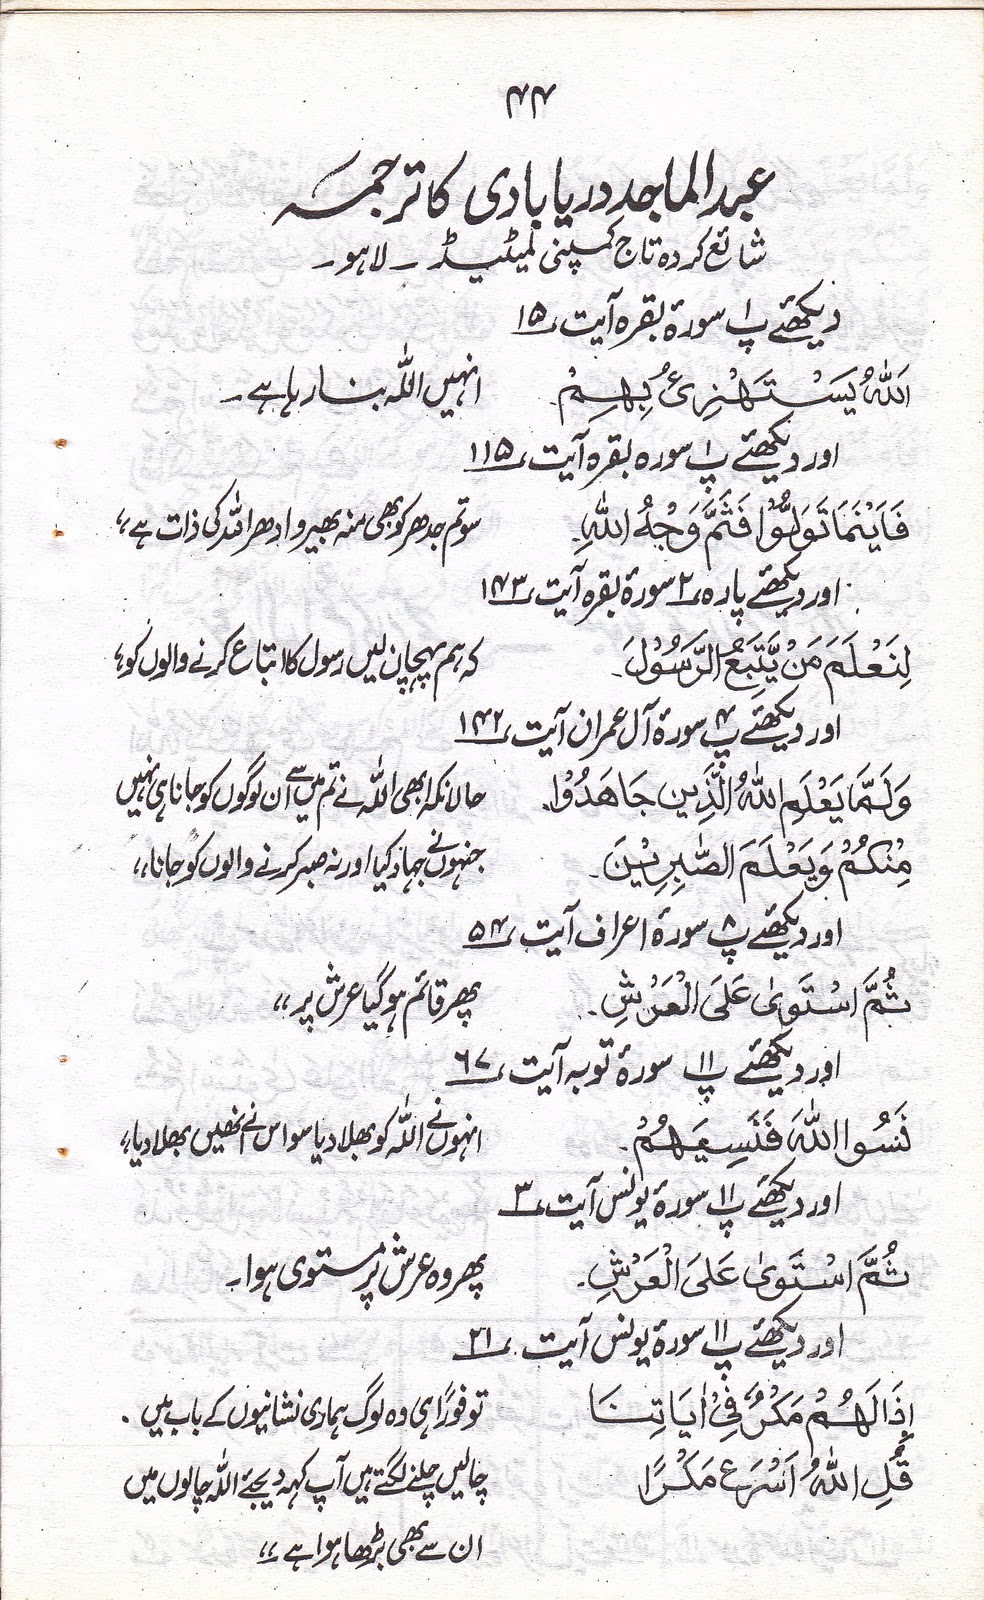 ۴۴
عبدالماجد دریابادی کا ترجمہ
شائع کردہ تاج کمپنی لمیٹیڈ ۔ لاہور
دیکھئے پ۱ سورۂ بقرہ آیت ۱۵
اَللّٰهُ يَسْتَهْزِئُ بِهِمْ۔ انہیں اللّٰہ بنا رہا ہے ۔
اور دیکھئے پ۱ سورہ بقرہ آیت ۱۱۵
فَاَيْنَمَا تَوَلُّوْا فَثَمَّ وَجْهُ اللّٰهِ۔ سو تم جدھر کو بھی منہ پھیرو ادھر اللّٰہ کی ذات ہے،،
اور دیکھئے پارہ ۲ سورۂ بقرہ آیت ۱۴۳
لِنَعْلَمَ مَنْ يَّتَّبِعُ الرَّسُوْلَ۔ کہ ہم پہچان لیں رسول کا اتباع کرنے والوں کو،،
اور دیکھئے پ۴ سورۂ آل عمران آیت ۱۴۲
وَلَمَّا يَعْلَمِ اللّٰهُ الَّذِيْنَ جَاهَدُوْا۔ حالانکہ ابھی اللّٰہ نے تم میں سے ان لوگوں کو جانا ہی نہیں
مِنْكُمْ وَيَعْلَمَ الصّٰبِرِيْنَ۔ جنہوں نے جہاد کیا اور نہ صبر کرنے والوں کو جانا،،
اور دیکھئے پ۸ سورۂ اعراف آیت ۵۴
ثُمَّ اسْتَوىٰ عَلَى الْعَرْشِ۔ پھر قائم ہو گیا عرش پر،،
اور دیکھئے پ۱۱ سورۂ توبہ آیت ۶۷
نَسُوا اللّٰهَ فَنَسِيَهُمْ۔ انہوں نے اللّٰہ کو بھلا دیا سو اس نے انھیں بھلا دیا،،
اور دیکھئے پ۱۱ سورۂ یونس آیت ۳
ثُمَّ اسْتَوىٰ عَلَى الْعَرْشِ۔ پھر وہ عرش پر مستوی ہوا۔
اور دیکھئے پ۱۱ سورۂ یونس آیت ۲۱
اِذَا لَهُمْ مَكْرٌ فِيْ اٰيَاتِنَا تو فوراً ہی وہ لوگ ہماری نشانیوں کے باب میں ۔
قُلِ اللّٰهُ اَسْرَعُ مَكْرًا چالیں چلنے لگتے ہیں آپ کہہ دیجئے اللّٰہ چالوں میں
ان سے بھی بڑھا ہوا ہے ،،